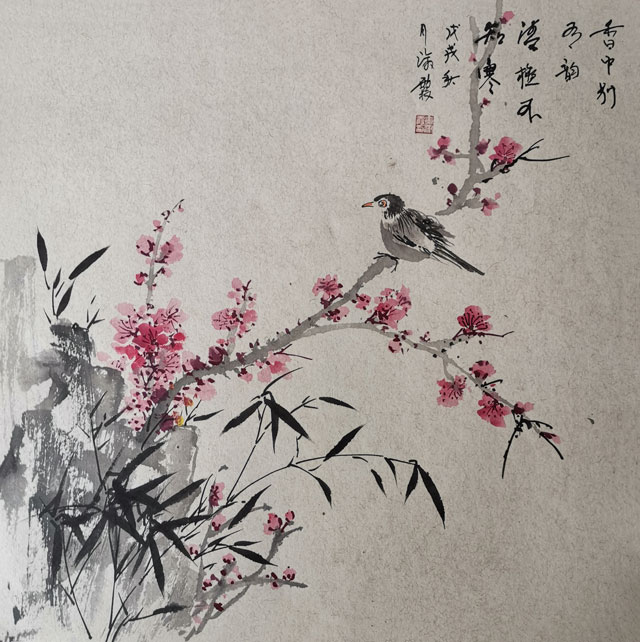 香中别
有韵
清極不
知寒
戊戌秋
月